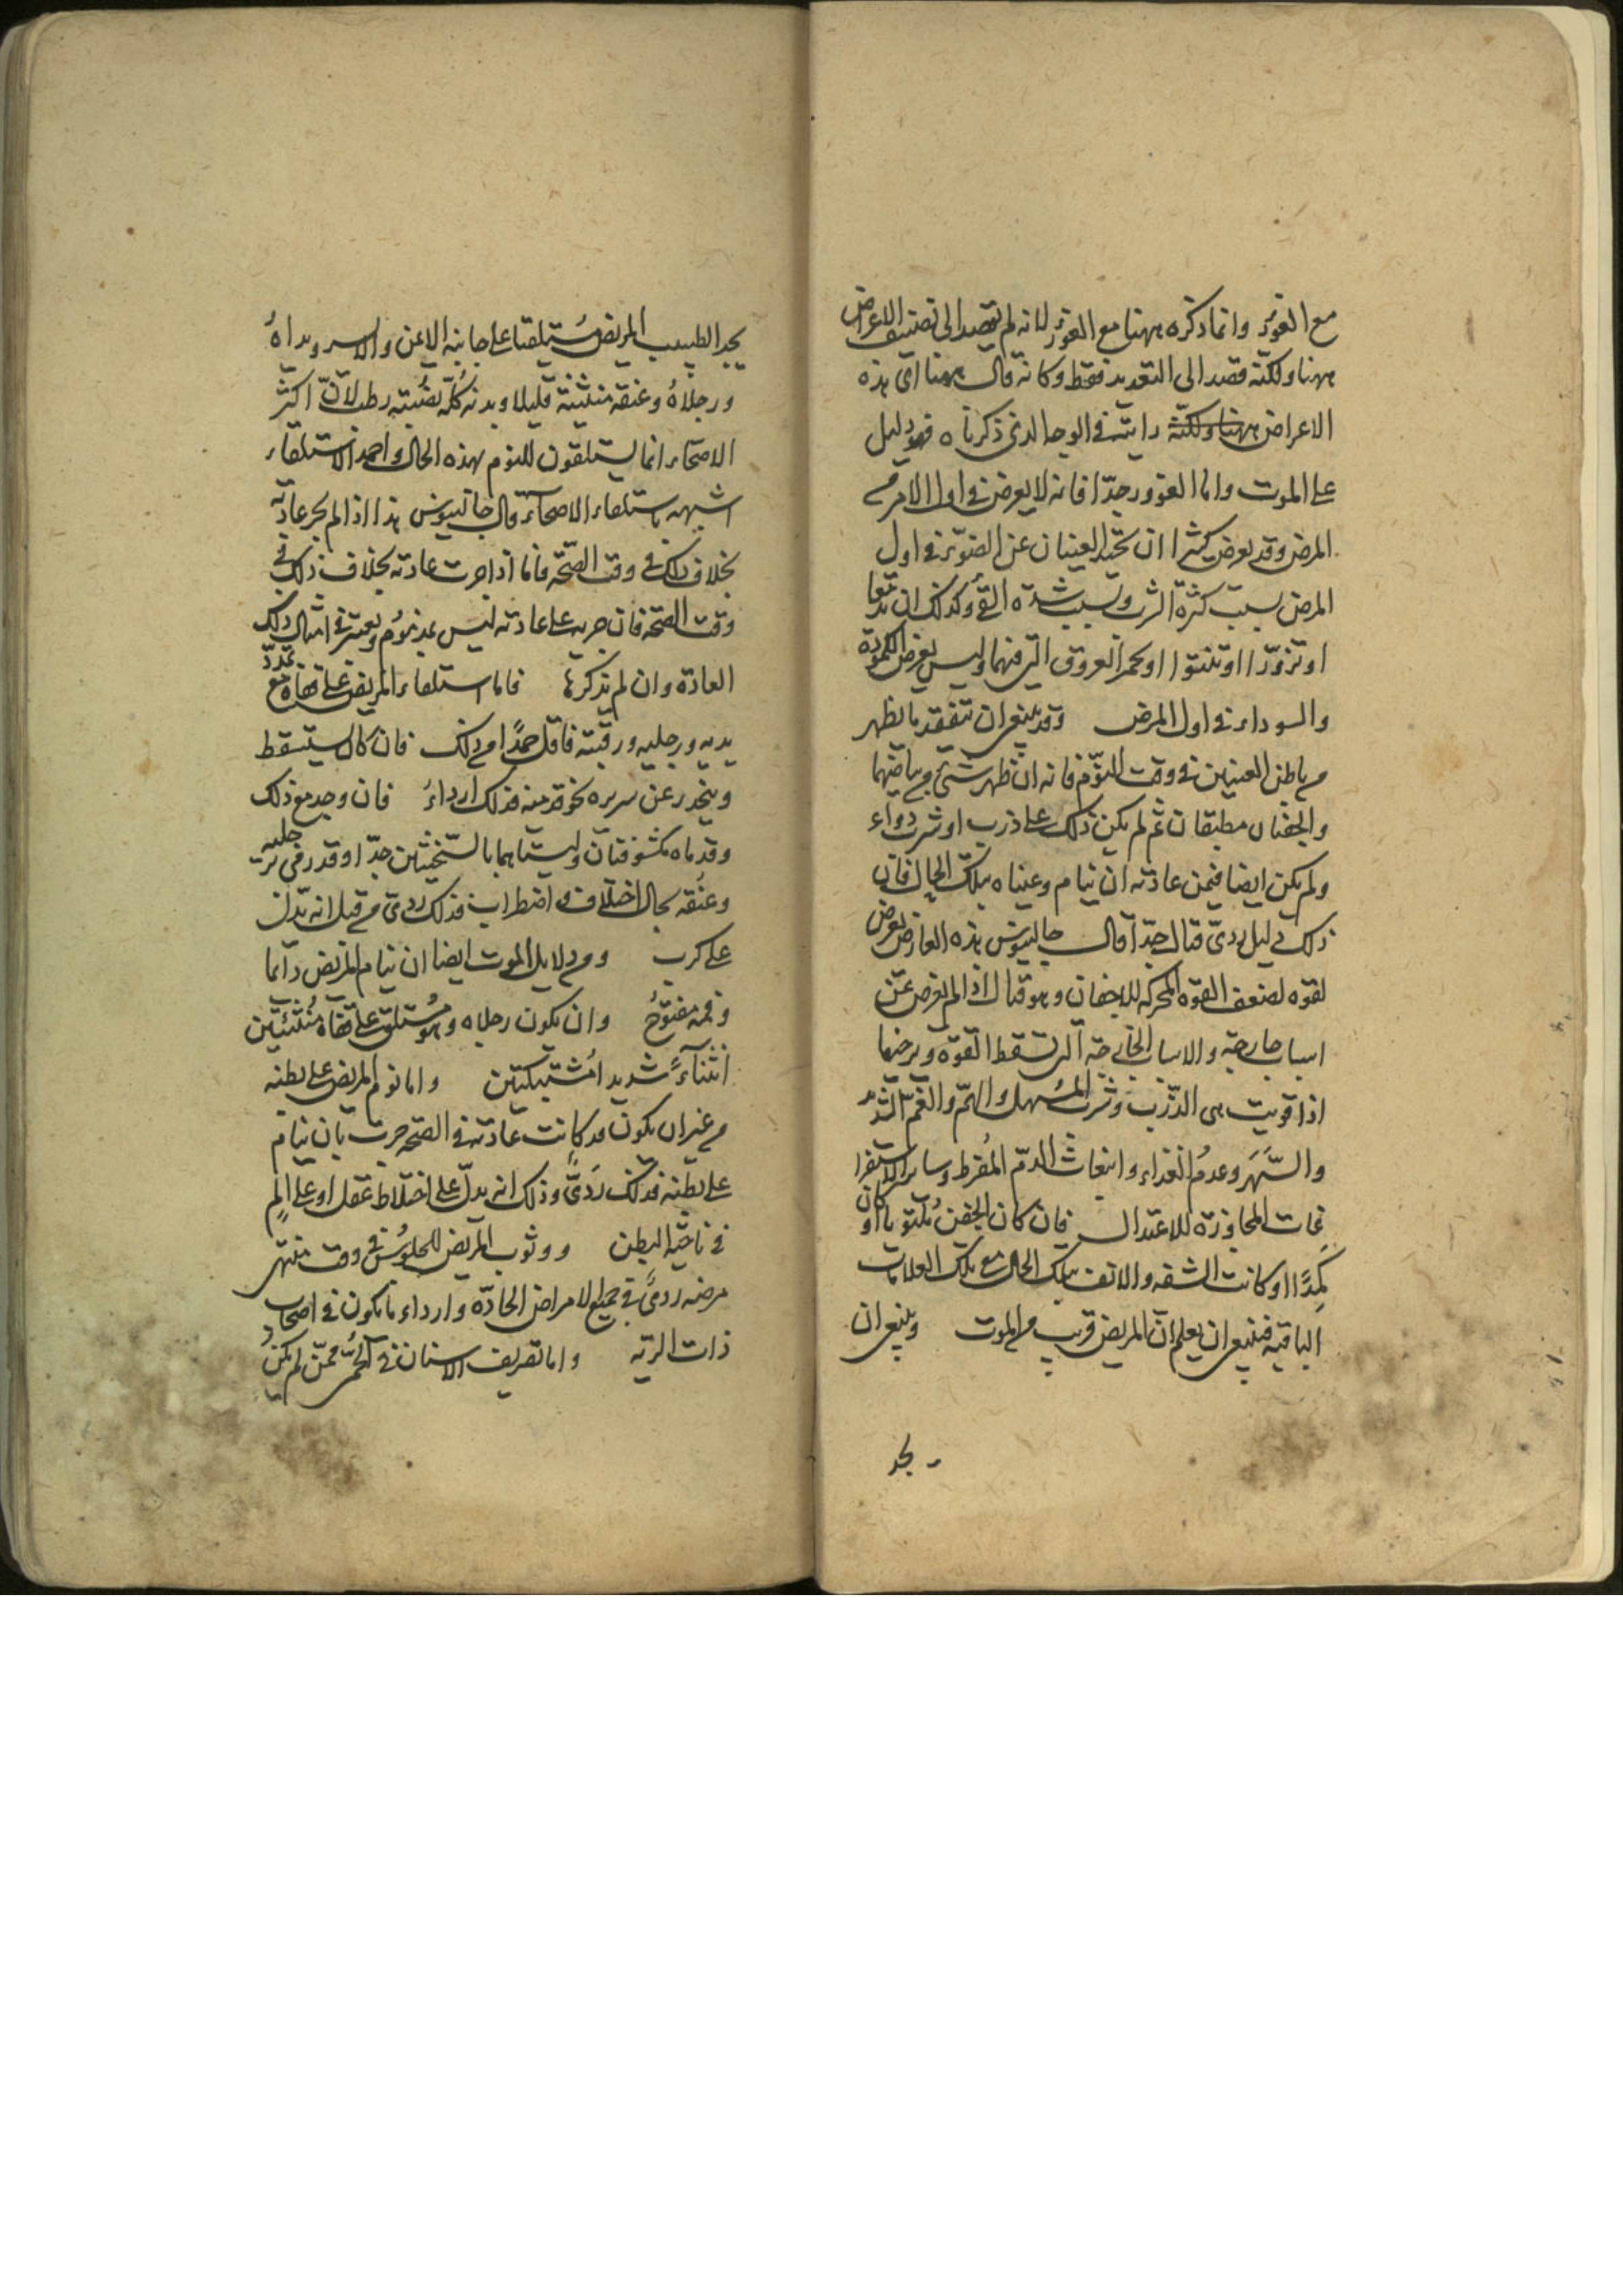 مع الغؤر وانما ذكره ههنا مع الغؤر لانه لم يقصد الى تصنيف الاعراض
ههنا ولكنه قصد الى التعديد فقط وكانه قال ههنا اى هذه
الاعراض ههنا ولكنه رايته فى الوجه الذى ذكرناه فهو دليل
على الموت واما الغوور جدا فانه لا يعرض فى اول الامر من
المرض وقد يعرض كثيرا ان تحيد العينان عن الضوء فى اول
المرض بسبب كثرة الشرب وبسبب شدة القئ وكذلك ان تدمعا
او تزورا او تنتوا او تحمر العروق التى فيهما وليس يعرض الكمودة
والسوداء فى اول المرض وقد ينبغى ان تتفقد ما يظهر
من باطن العينين فى وقت النوم فانه ان ظهر شئ من بياضهما
والجفنان مطبقان ثم لم يكن ذلك على ذرب او شرب دواء
ولم يكن ايضا فيمن عادته ان ينام وعيناه بتلك الحال فان
ذلك دليل ردئ قتال جدا قال جالينوس هذه العارض يعرض
لقوه لضعف القوه المحركه للاجفان وهو قتال اذا لم يعرض عن
اسباب خارجة والاسباب الخارجة التى تسقط القوة وترخيها
اذا قويت هى الذرب وشرب المسهل والهم والغم الشديد
والسهر وعدم الغذاء وانبعاث الدم المفرط وساير الاستفرا
غات المجاوزة للاعتدال فان كان الجفن ملتويا او كان
كمدا او كانت الشفه والانف بتلك الحال مع تلك العلامات
الباقيه فينبغى ان يعلم ان المريض قريب من الموت وينبغى ان
يجد
يجد الطبيب المريض مستلقيا على جانبه الايمن والايسر ويداه
ورجلاه وعنقه منثنية قليلا وبدنه كله نصبته رطب لان اكثر
الاصحاء انما يستلقون للنوم بهذه الحال واحمد الاستلقاء
اشبهه باستلقاء الاصحاء قال جالينوس هذا اذا لم تجر عادته
بخلاف ذلك فى وقت الصحه فاما اذا جرت عادته بخلاف ذلك فى
وقت الصحه فان جريه على عادته ليس بمذموم ويعتبر فى امثال ذلك
العادة وان لم نذكرها فاما استلقاء المريض على قفاه مع تمدد
يديه ورجليه ورقبته فاقل حمدا من ذلك فان كان يسقط
وينحدر عن سريره نحو قدميه فذلك ارداء فان وجد مع ذلك
وقدماه مكشوفتان وليستا هما بالسخينتين جدا وقد رمى يديه رجليه
وعنقه بحال اختلاف واضطراب فذلك ردئ من قبل انه يدل
على كرب ومن دلايل الموت ايضا ان ينام المريض دائما
وفمه مفتوح وان يكون رجلاه وهو مستلق على قفاه منثنيتين
انثناء شديدا مشتبكتين واما نوم المريض على بطنه
من غير ان يكون قد كانت عادته فى الصحه جرت بان ينام
على بطنه فذلك ردى وذلك انه يدل على اختلاط عقل او على الم
فى ناحية البطن ووثوب المريض للجلوس فى وقت منتهى
مرضه ردى فى جميع الامراض الحادة وارداء ما يكون فى اصحاب
ذات الريه واما تصريف الاسنان فى الحمى ممن لم يكن